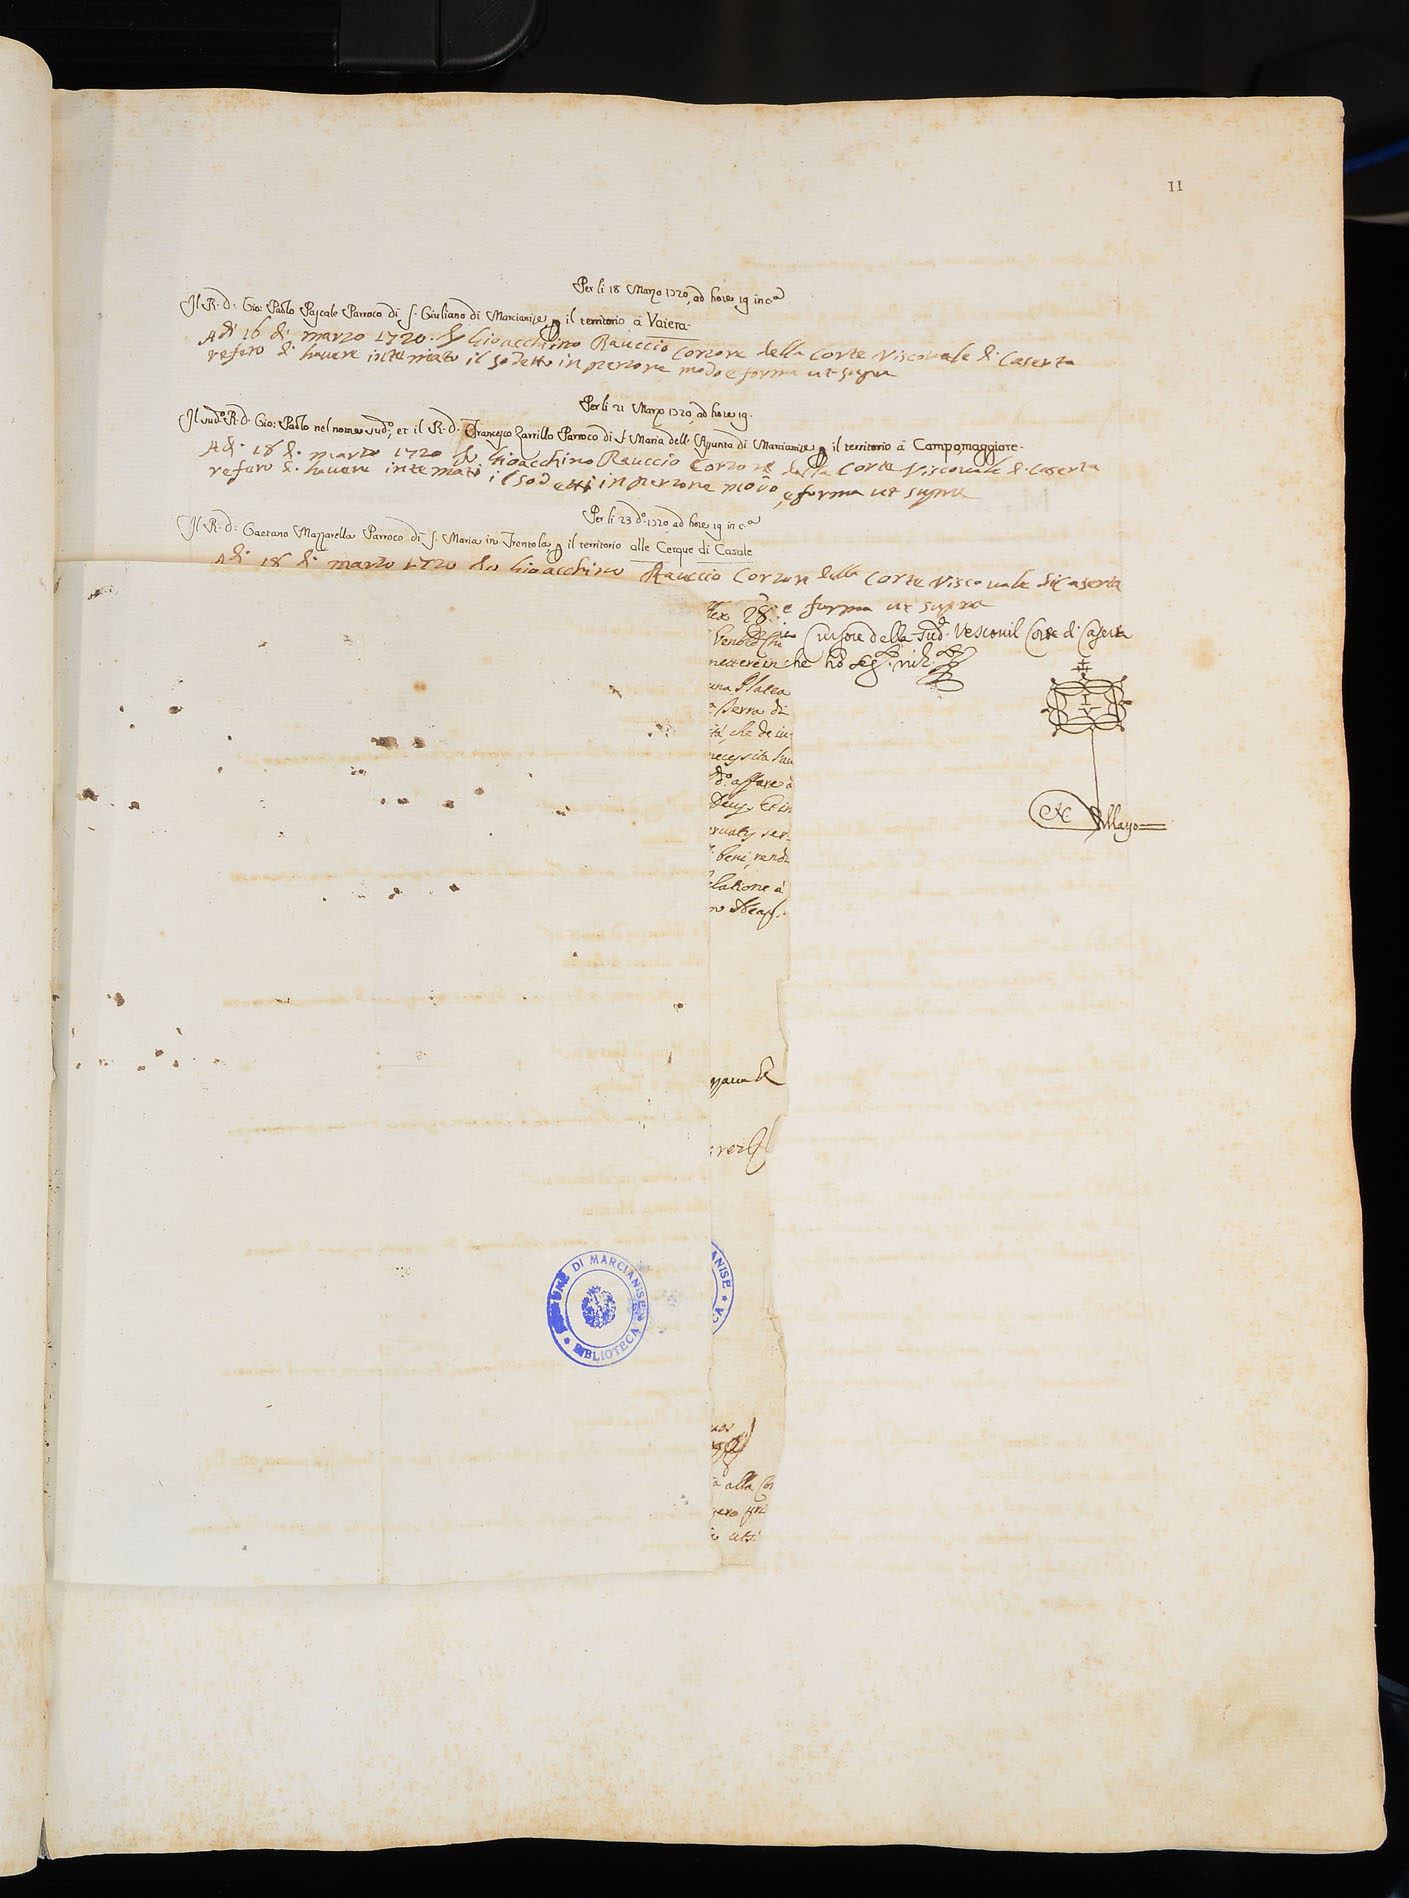 11
Per li 18 Marzo 1720, ad hore 19 in c.a
Il R. D. Gio: Paolo Pascale Parroco di S. Giuliano di Marcianise, p il territorio à Vaiera.
Adi 16 di marzo 1720. Io Gioacchino Rauccio Corsore della Corte Viscovale di Caserta
refero di havere intemato il sodetto in persone modo e forma ut supra
Per li 21 Marzo 1720, ad hore 19.
Il sud.o R. D. Gio: Paolo nel nome sud.o, et il R. D. Francesco Zarrillo Parroco di S. Maria dell' Assunta di Marcianise p il territorio à Campomaggiore.
Adi 18 di marzo 1720 Io Gioacchino Rauccio Corsore della Corte Viscovale di Caserta
refero di havere intemati il sodetti in persone modo, e forma ut supra
Per li 23 d.o 1720, ad hore 19 in c.a
Il R. D. Gaetano Mazzarella Parroco di S. Maria in Trentola, p il territorio alle Cerque di Casale
Adi 18 di marzo 1720 Io Gioacchino Rauccio Corsore della Corte Viscovale di Caserta
e forma ut supra
28
Cursore della sud.a Vescovil Corte di Caserta
nettere in che hò
una Platea
Terra di
tà, che de iu
necessita
d.o affare à
beni, rendi
latione à
DI MARCIANISE
BIBLIOTECA
ANISE
CA
à alla Co